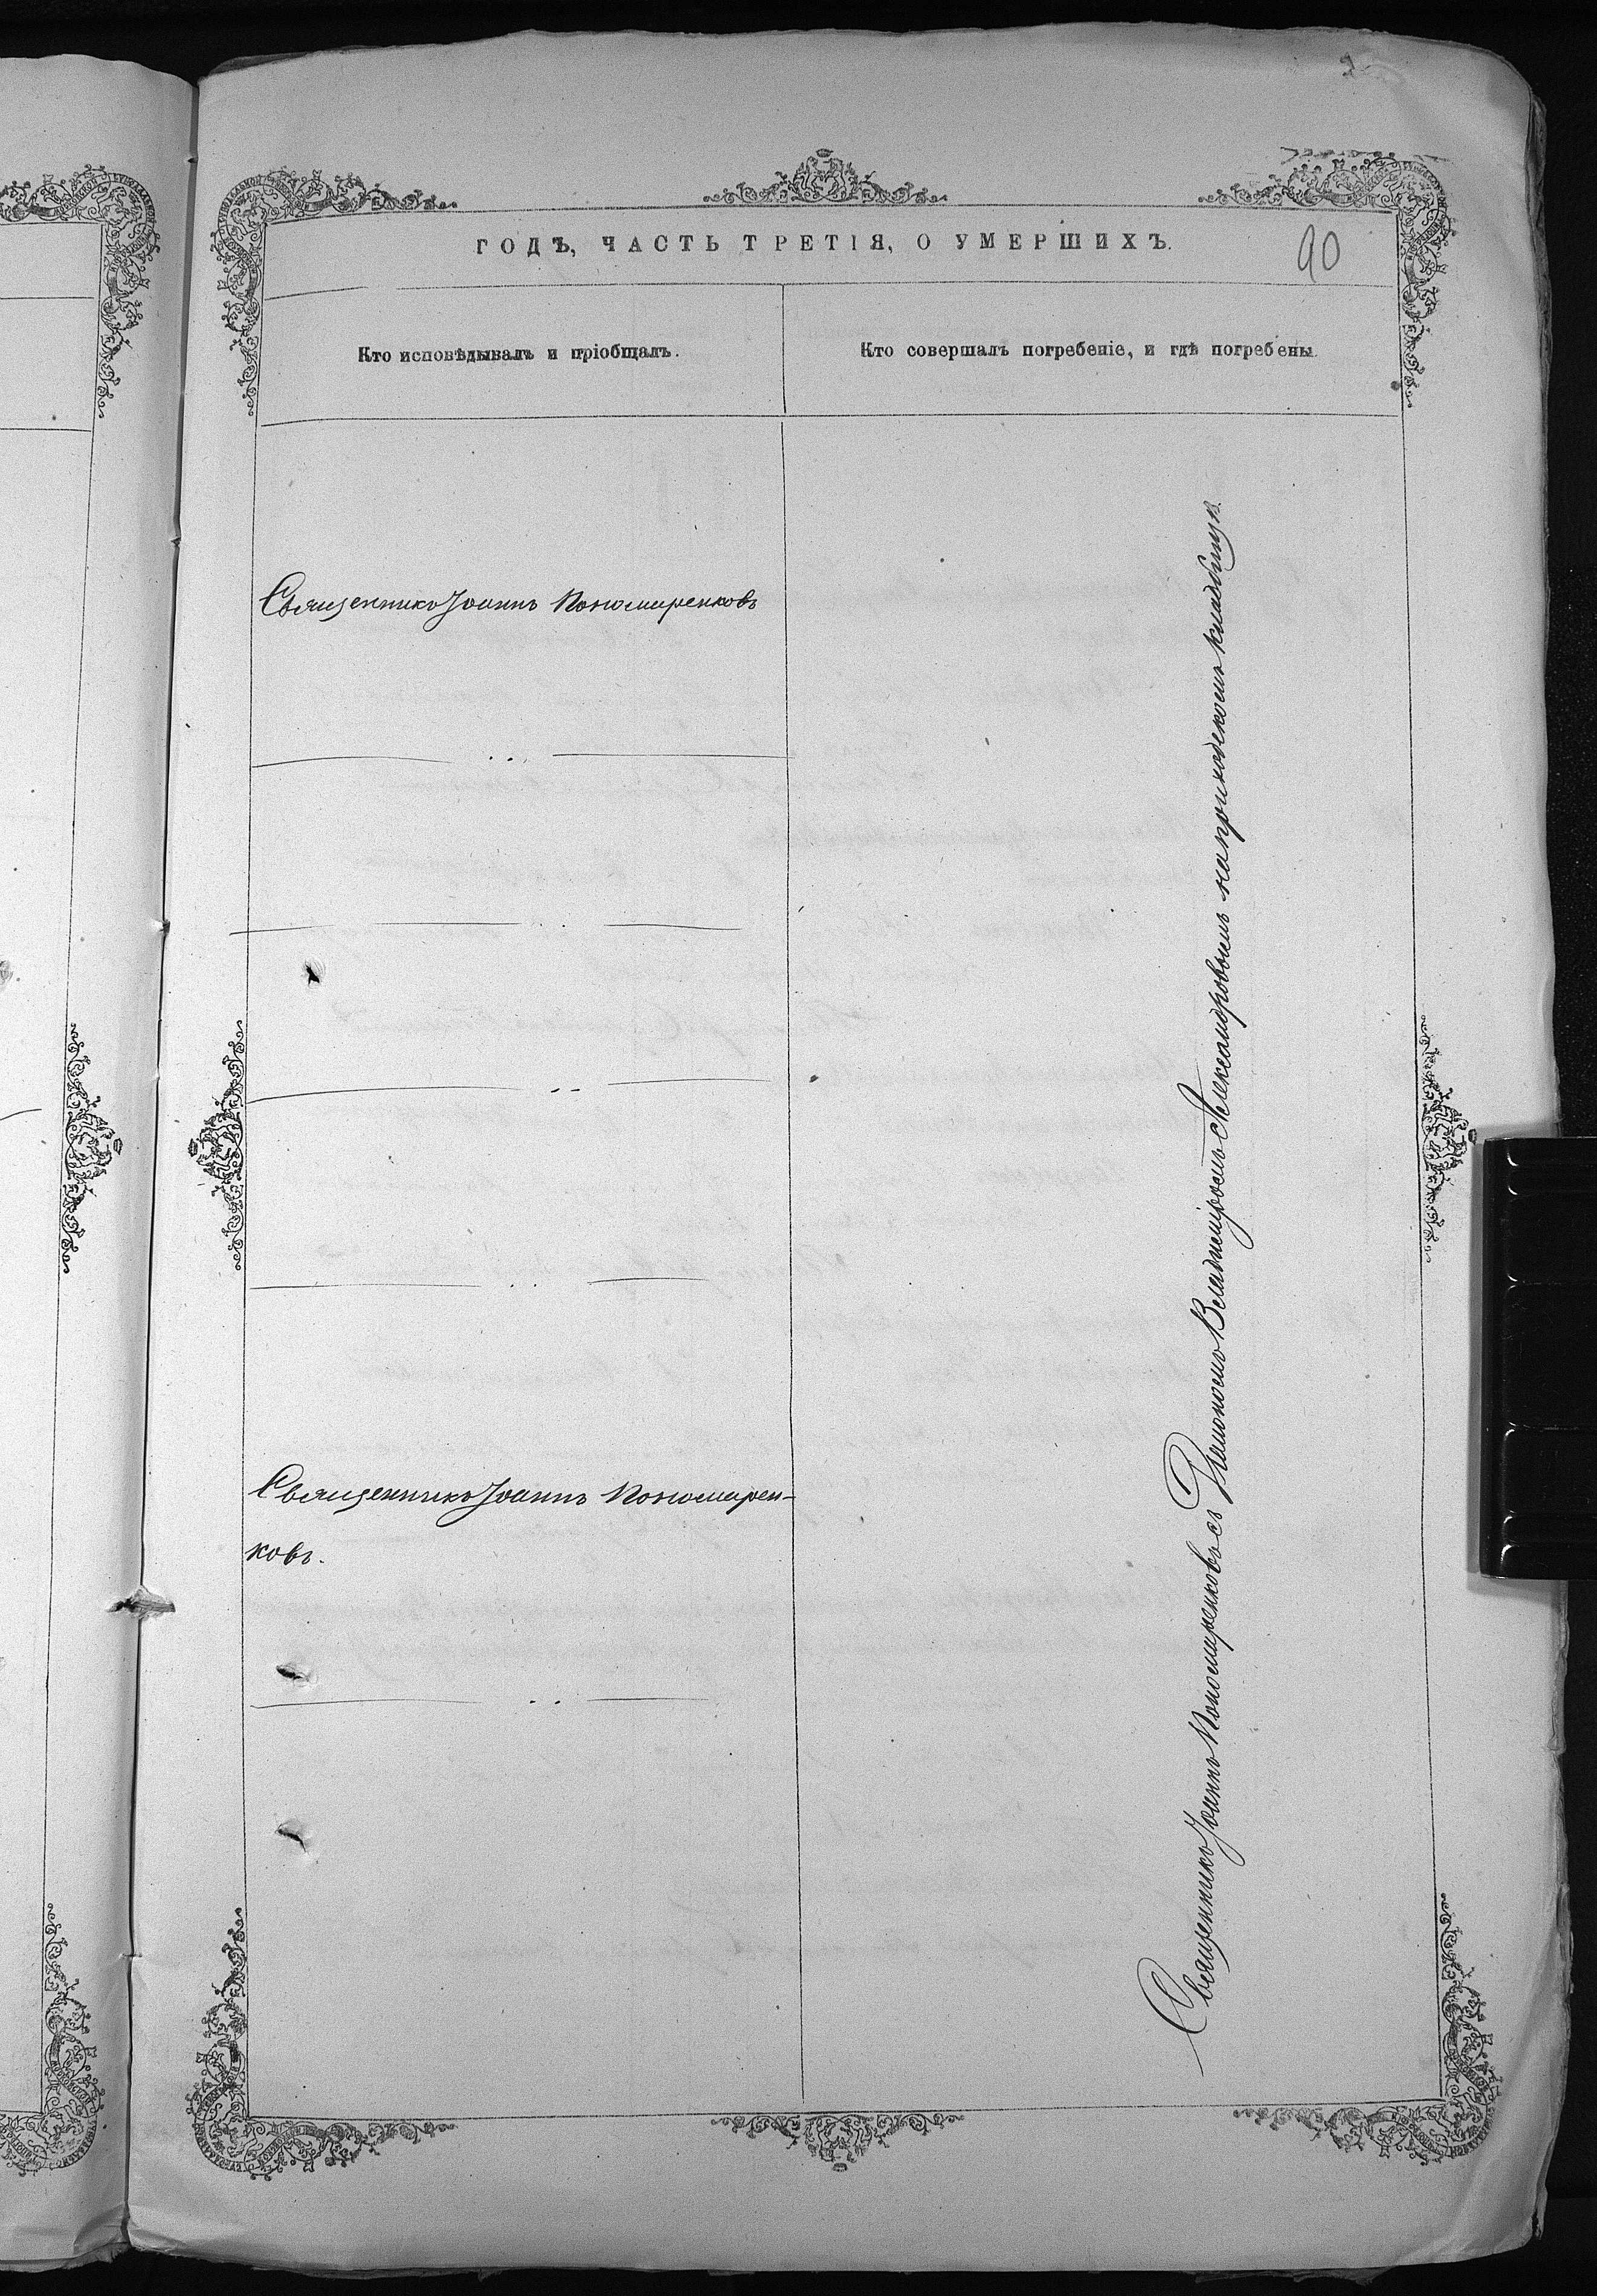 ГОДЪ, ЧАСТЬ ТРЕТІЯ, О УМЕРШИХЪ.
90
Кто исповѣдывалъ и пріобщалъ.
Кто совершалъ погребеніе, и гдѣ погребены.
Священникъ Іоаннъ Пономаренковъ
Священникъ Іоаннъ Пономарен-
ковъ.
Священникъ Іоаннъ Пономаренковъ съ Диакономъ Владиміромъ Александровымъ на приходскомъ кладбищѣ.